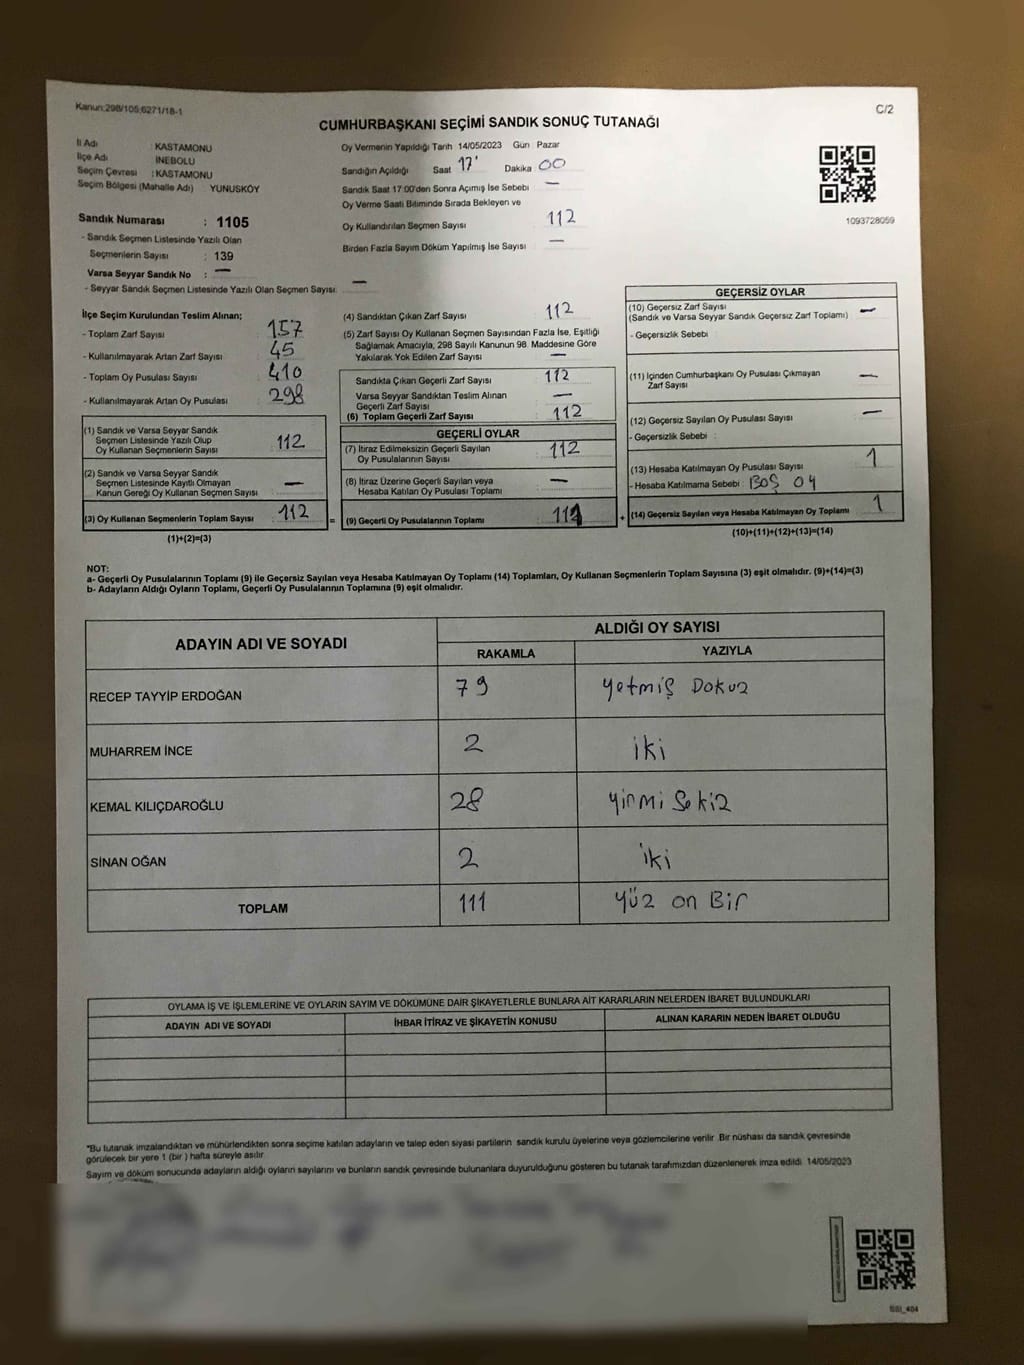 Kanun:298/105;6271/18-1
C/2
CUMHURBAŞKANI SEÇİMİ SANDIK SONUÇ TUTANAĞI
İl Adı : KASTAMONU
İlçe Adı : İNEBOLU
Seçim Çevresi : KASTAMONU
Seçim Bölgesi (Mahalle Adı) YUNUSKÖY
Sandık Numarası : 1105
- Sandık Seçmen Listesinde Yazılı Olan
Seçmenlerin Sayısı : 139
Varsa Seyyar Sandık No : —
- Seyyar Sandık Seçmen Listesinde Yazılı Olan Seçmen Sayısı: —
Oy Vermenin Yapıldığı Tarih 14/05/2023 Gün : Pazar
Sandığın Açıldığı Saat 17 Dakika 00
Sandık Saat 17:00'den Sonra Açımış İse Sebebi —
Oy Verme Saati Bitiminde Sırada Bekleyen ve
Oy Kullandırılan Seçmen Sayısı 112
Birden Fazla Sayım Döküm Yapılmış İse Sayısı —
1093728059
İlçe Seçim Kurulundan Teslim Alınan;
- Toplam Zarf Sayısı : 157
- Kullanılmayarak Artan Zarf Sayısı : 45
- Toplam Oy Pusulası Sayısı : 410
- Kullanılmayarak Artan Oy Pusulası : 298
(1) Sandık ve Varsa Seyyar Sandık
Seçmen Listesinde Yazılı Olup
Oy Kullanan Seçmenlerin Sayısı : 112
(2) Sandık ve Varsa Seyyar Sandık
Seçmen Listesinde Kayıtlı Olmayan
Kanun Gereği Oy Kullanan Seçmen Sayısı : —
(3) Oy Kullanan Seçmenlerin Toplam Sayısı : 112 =
(1)+(2)=(3)
(4) Sandıktan Çıkan Zarf Sayısı : 112
(5) Zarf Sayısı Oy Kullanan Seçmen Sayısından Fazla İse, Eşitliği
Sağlamak Amacıyla, 298 Sayılı Kanunun 98. Maddesine Göre
Yakılarak Yok Edilen Zarf Sayısı : —
Sandıkta Çıkan Geçerli Zarf Sayısı : 112
Varsa Seyyar Sandıktan Teslim Alınan
Geçerli Zarf Sayısı : —
(6) Toplam Geçerli Zarf Sayısı : 112
GEÇERLİ OYLAR
(7) İtiraz Edilmeksizin Geçerli Sayılan
Oy Pusulalarının Sayısı : 112
(8) İtiraz Üzerine Geçerli Sayılan veya
Hesaba Katılan Oy Pusulası Toplamı : —
(9) Geçerli Oy Pusulalarının Toplamı : 111 +
GEÇERSİZ OYLAR
(10) Geçersiz Zarf Sayısı
(Sandık ve Varsa Seyyar Sandık Geçersiz Zarf Toplamı) : —
- Geçersizlik Sebebi :
(11) İçinden Cumhurbaşkanı Oy Pusulası Çıkmayan
Zarf Sayısı : —
(12) Geçersiz Sayılan Oy Pusulası Sayısı : —
- Geçersizlik Sebebi :
(13) Hesaba Katılmayan Oy Pusulası Sayısı 1
- Hesaba Katılmama Sebebi : BOŞ OY
(14) Geçersiz Sayılan veya Hesaba Katılmayan Oy Toplamı : 1
(10)+(11)+(12)+(13)=(14)
NOT:
a- Geçerli Oy Pusulalarının Toplamı (9) ile Geçersiz Sayılan veya Hesaba Katılmayan Oy Toplamı (14) Toplamları, Oy Kullanan Seçmenlerin Toplam Sayısına (3) eşit olmalıdır. (9)+(14)=(3)
b- Adayların Aldığı Oyların Toplamı, Geçerli Oy Pusulalarının Toplamına (9) eşit olmalıdır.
ADAYIN ADI VE SOYADI
ALDIĞI OY SAYISI
RAKAMLA YAZIYLA
RECEP TAYYİP ERDOĞAN 79 Yetmiş Dokuz
MUHARREM İNCE 2 iki
KEMAL KILIÇDAROĞLU 28 Yirmi Sekiz
SİNAN OĞAN 2 iki
TOPLAM 111 Yüz on Bir
OYLAMA İŞ VE İŞLEMLERİNE VE OYLARIN SAYIM VE DÖKÜMÜNE DAİR ŞİKAYETLERLE BUNLARA AİT KARARLARIN NELERDEN İBARET BULUNDUKLARI
ADAYIN ADI VE SOYADI İHBAR İTİRAZ VE ŞİKAYETİN KONUSU ALINAN KARARIN NEDEN İBARET OLDUĞU
"Bu tutanak imzalandıktan ve mühürlendikten sonra seçime katılan adayların ve talep eden siyasi partilerin sandık kurulu üyelerine veya gözlemcilerine verilir. Bir nüshası da sandık çevresinde
görülecek bir yere 1 (bir ) hafta süreyle asılır.
Sayım ve döküm sonucunda adayların aldığı oyların sayılarını ve bunların sandık çevresinde bulunanlara duyurulduğunu gösteren bu tutanak tarafımızdan düzenlenerek imza edildi. 14/05/2023